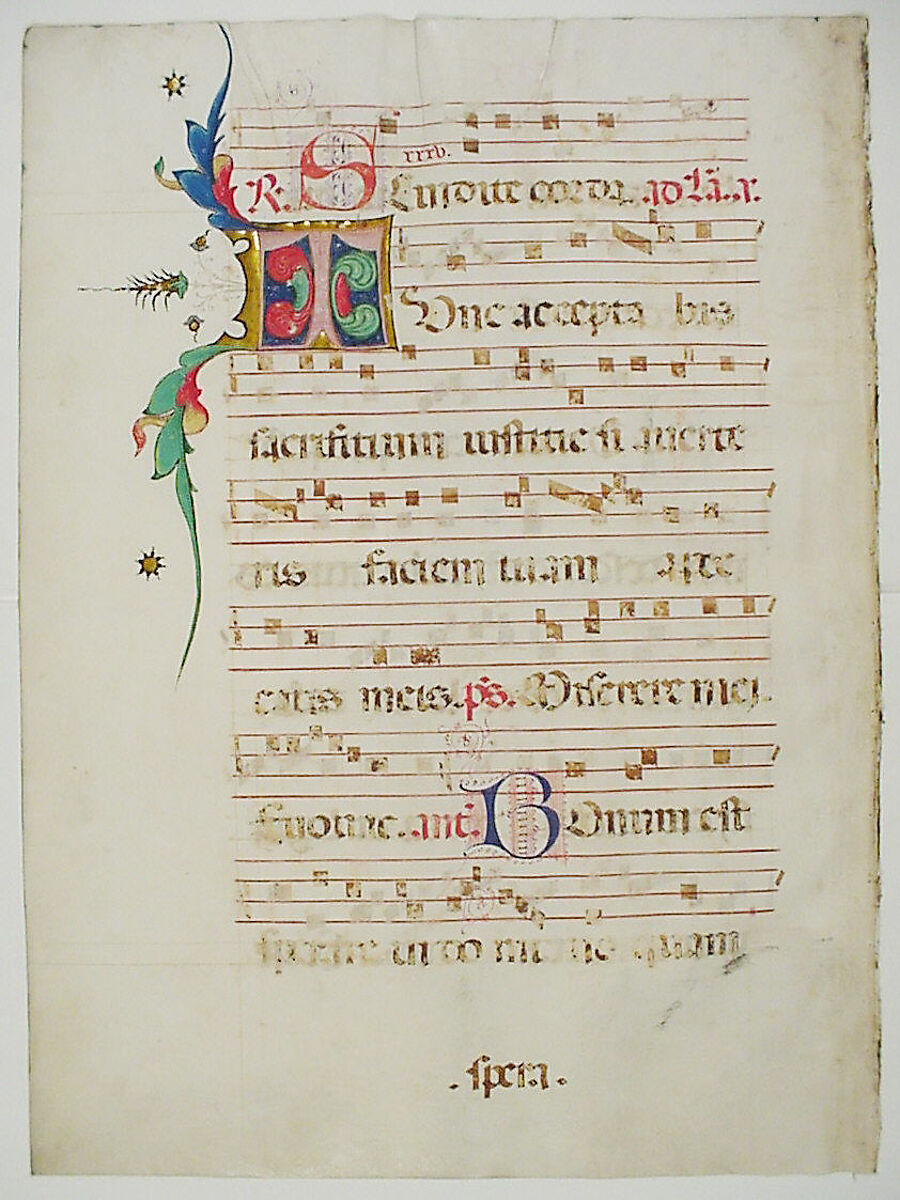 xxxv.
R. SCindite corda. ad La
TUnc accepta bis
sacrifitium iustitie si averte
ris faciem tuam a pec
catis meis. ps. Miserere mei.
Euouae. ant. BOnum est
sperare in do mi no quam
. spera .